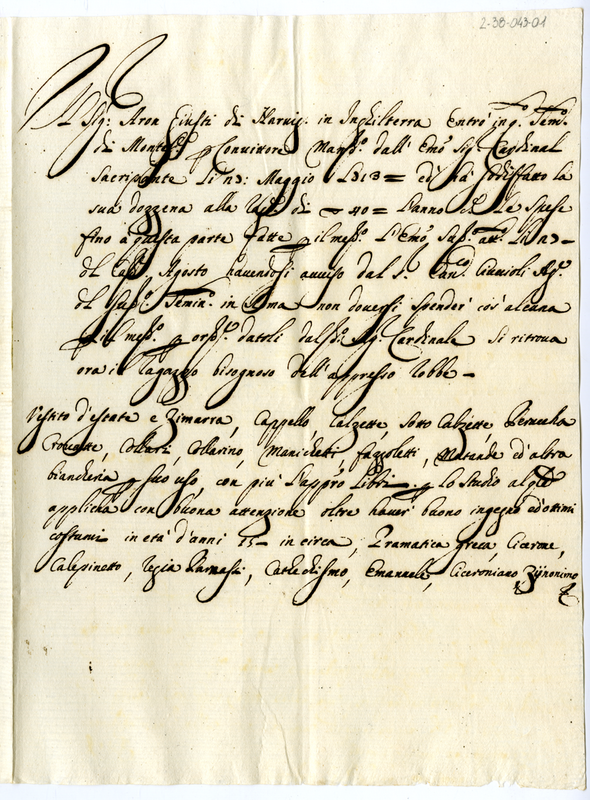 2-38-043-01
Il Sig: Aron Giusti di Harvig. in Inghilterra Entrò in q. Sem.
di Monte Convittore Mand. dall' Emo Sig. Cardinal
Sacripante Li 23: Maggio 1713 = ed hà sodisfatto la
sua dozzena alla di 40 = L'anno Le Spese
fino à questa parte fatte p il med. L'Emo, Li 23 -
Agosto havendosi avviso dal S. Can. Ciuuioli
Semin. in Roma non doversi spender cos' alcuna
p il med. p datoli dal Sig. Cardinale si ritrova
ora il Ragazzo bisognoso dell' appresso robbe -
Vestito d'estate e Zimarra, Cappello, Calzette, sotto Calzette, Perucha
Crovatte, Collari, Collarino, Manichetti fazzoletti, Mutande ed' altra
biancheria p suo uso, con più L'appro Libri p lo studio al qle
applicha con buona attenzione oltre haver buono ingegno ed ottimi
costumi in età d'anni 15 - in circa, Gramatica greca, Cicerone,
Calepinetto, Regia Parnassi, Cathechismo, Emanuele, Ciceroniano, Zijnonimo